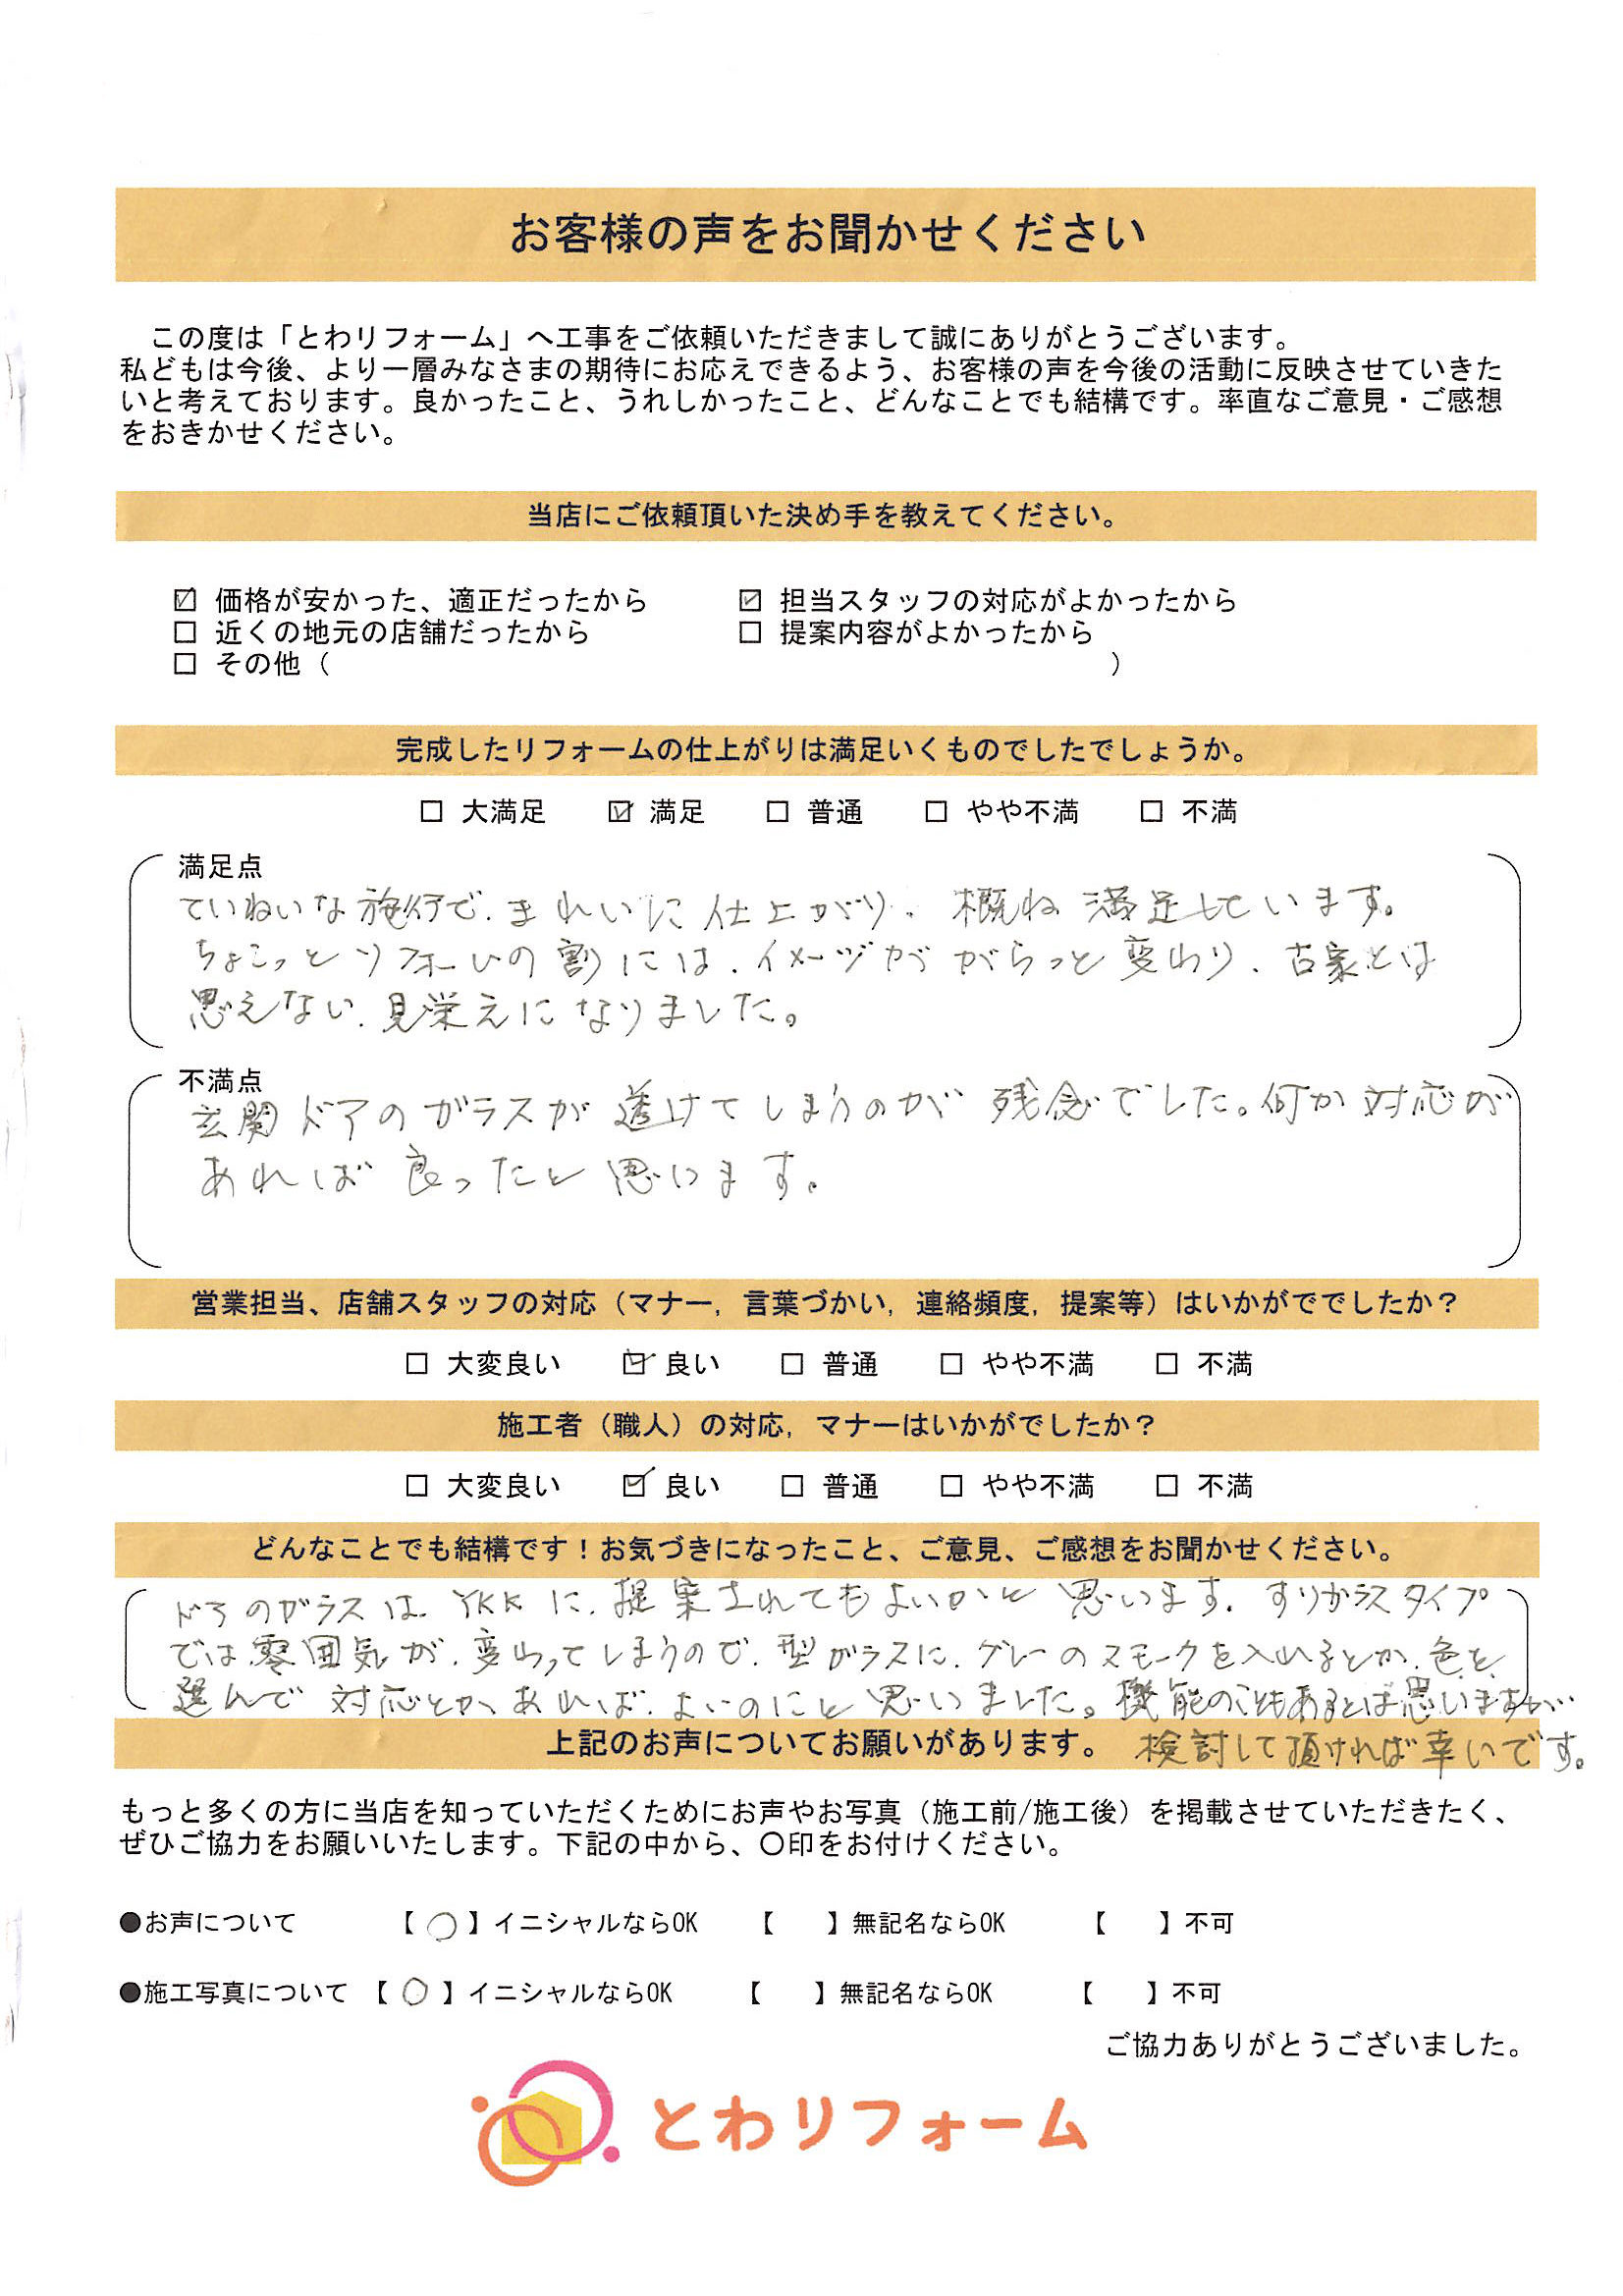 お客様の声をお聞かせください
この度は「とわリフォーム」へ工事をご依頼いただきまして誠にありがとうございます。
私どもは今後、より一層みなさまの期待にお応えできるよう、お客様の声を今後の活動に反映させていきた
いと考えております。良かったこと、うれしかったこと、どんなことでも結構です。率直なご意見・ご感想
をおきかせください。
当店にご依頼頂いた決め手を教えてください。
☑ 価格が安かった、適正だったから ☑ 担当スタッフの対応がよかったから
□ 近くの地元の店舗だったから □ 提案内容がよかったから
□ その他（ ）
完成したリフォームの仕上がりは満足いくものでしたでしょうか。
□ 大満足 ☑ 満足 □ 普通 □ やや不満 □ 不満
満足点
ていねいな施行で、きれいに仕上がり、概ね満足しています。
ちょこっとリフォームの割には、イメージががらっと変わり、古家とは
思えない、見栄えになりました。
不満点
玄関ドアのガラスが透けてしまうのが残念でした。何か対応が
あれば良ったと思います。
営業担当、店舗スタッフの対応（マナー, 言葉づかい, 連絡頻度, 提案等）はいかがででしたか？
□ 大変良い ☑ 良い □ 普通 □ やや不満 □ 不満
施工者（職人）の対応, マナーはいかがでしたか？
□ 大変良い ☑ 良い □ 普通 □ やや不満 □ 不満
どんなことでも結構です！お気づきになったこと、ご意見、ご感想をお聞かせください。
ドアのガラスは、YKKに、提案されてもよいかと思います。すりガラスタイプ
では雰囲気が、変わってしまうので、型ガラスに、グレーのスモークを入れるとか、色を、
選んで対応とか、あれば、よいのにと思いました。機能のこともあるとは思いますが…
検討して頂ければ幸いです。
上記のお声についてお願いがあります。
もっと多くの方に当店を知っていただくためにお声やお写真（施工前/施工後）を掲載させていただきたく、
ぜひご協力をお願いいたします。下記の中から、〇印をお付けください。
●お声について 【 ○ 】イニシャルならOK 【 】無記名ならOK 【 】不可
●施工写真について 【 ○ 】イニシャルならOK 【 】無記名ならOK 【 】不可
ご協力ありがとうございました。
とわリフォーム